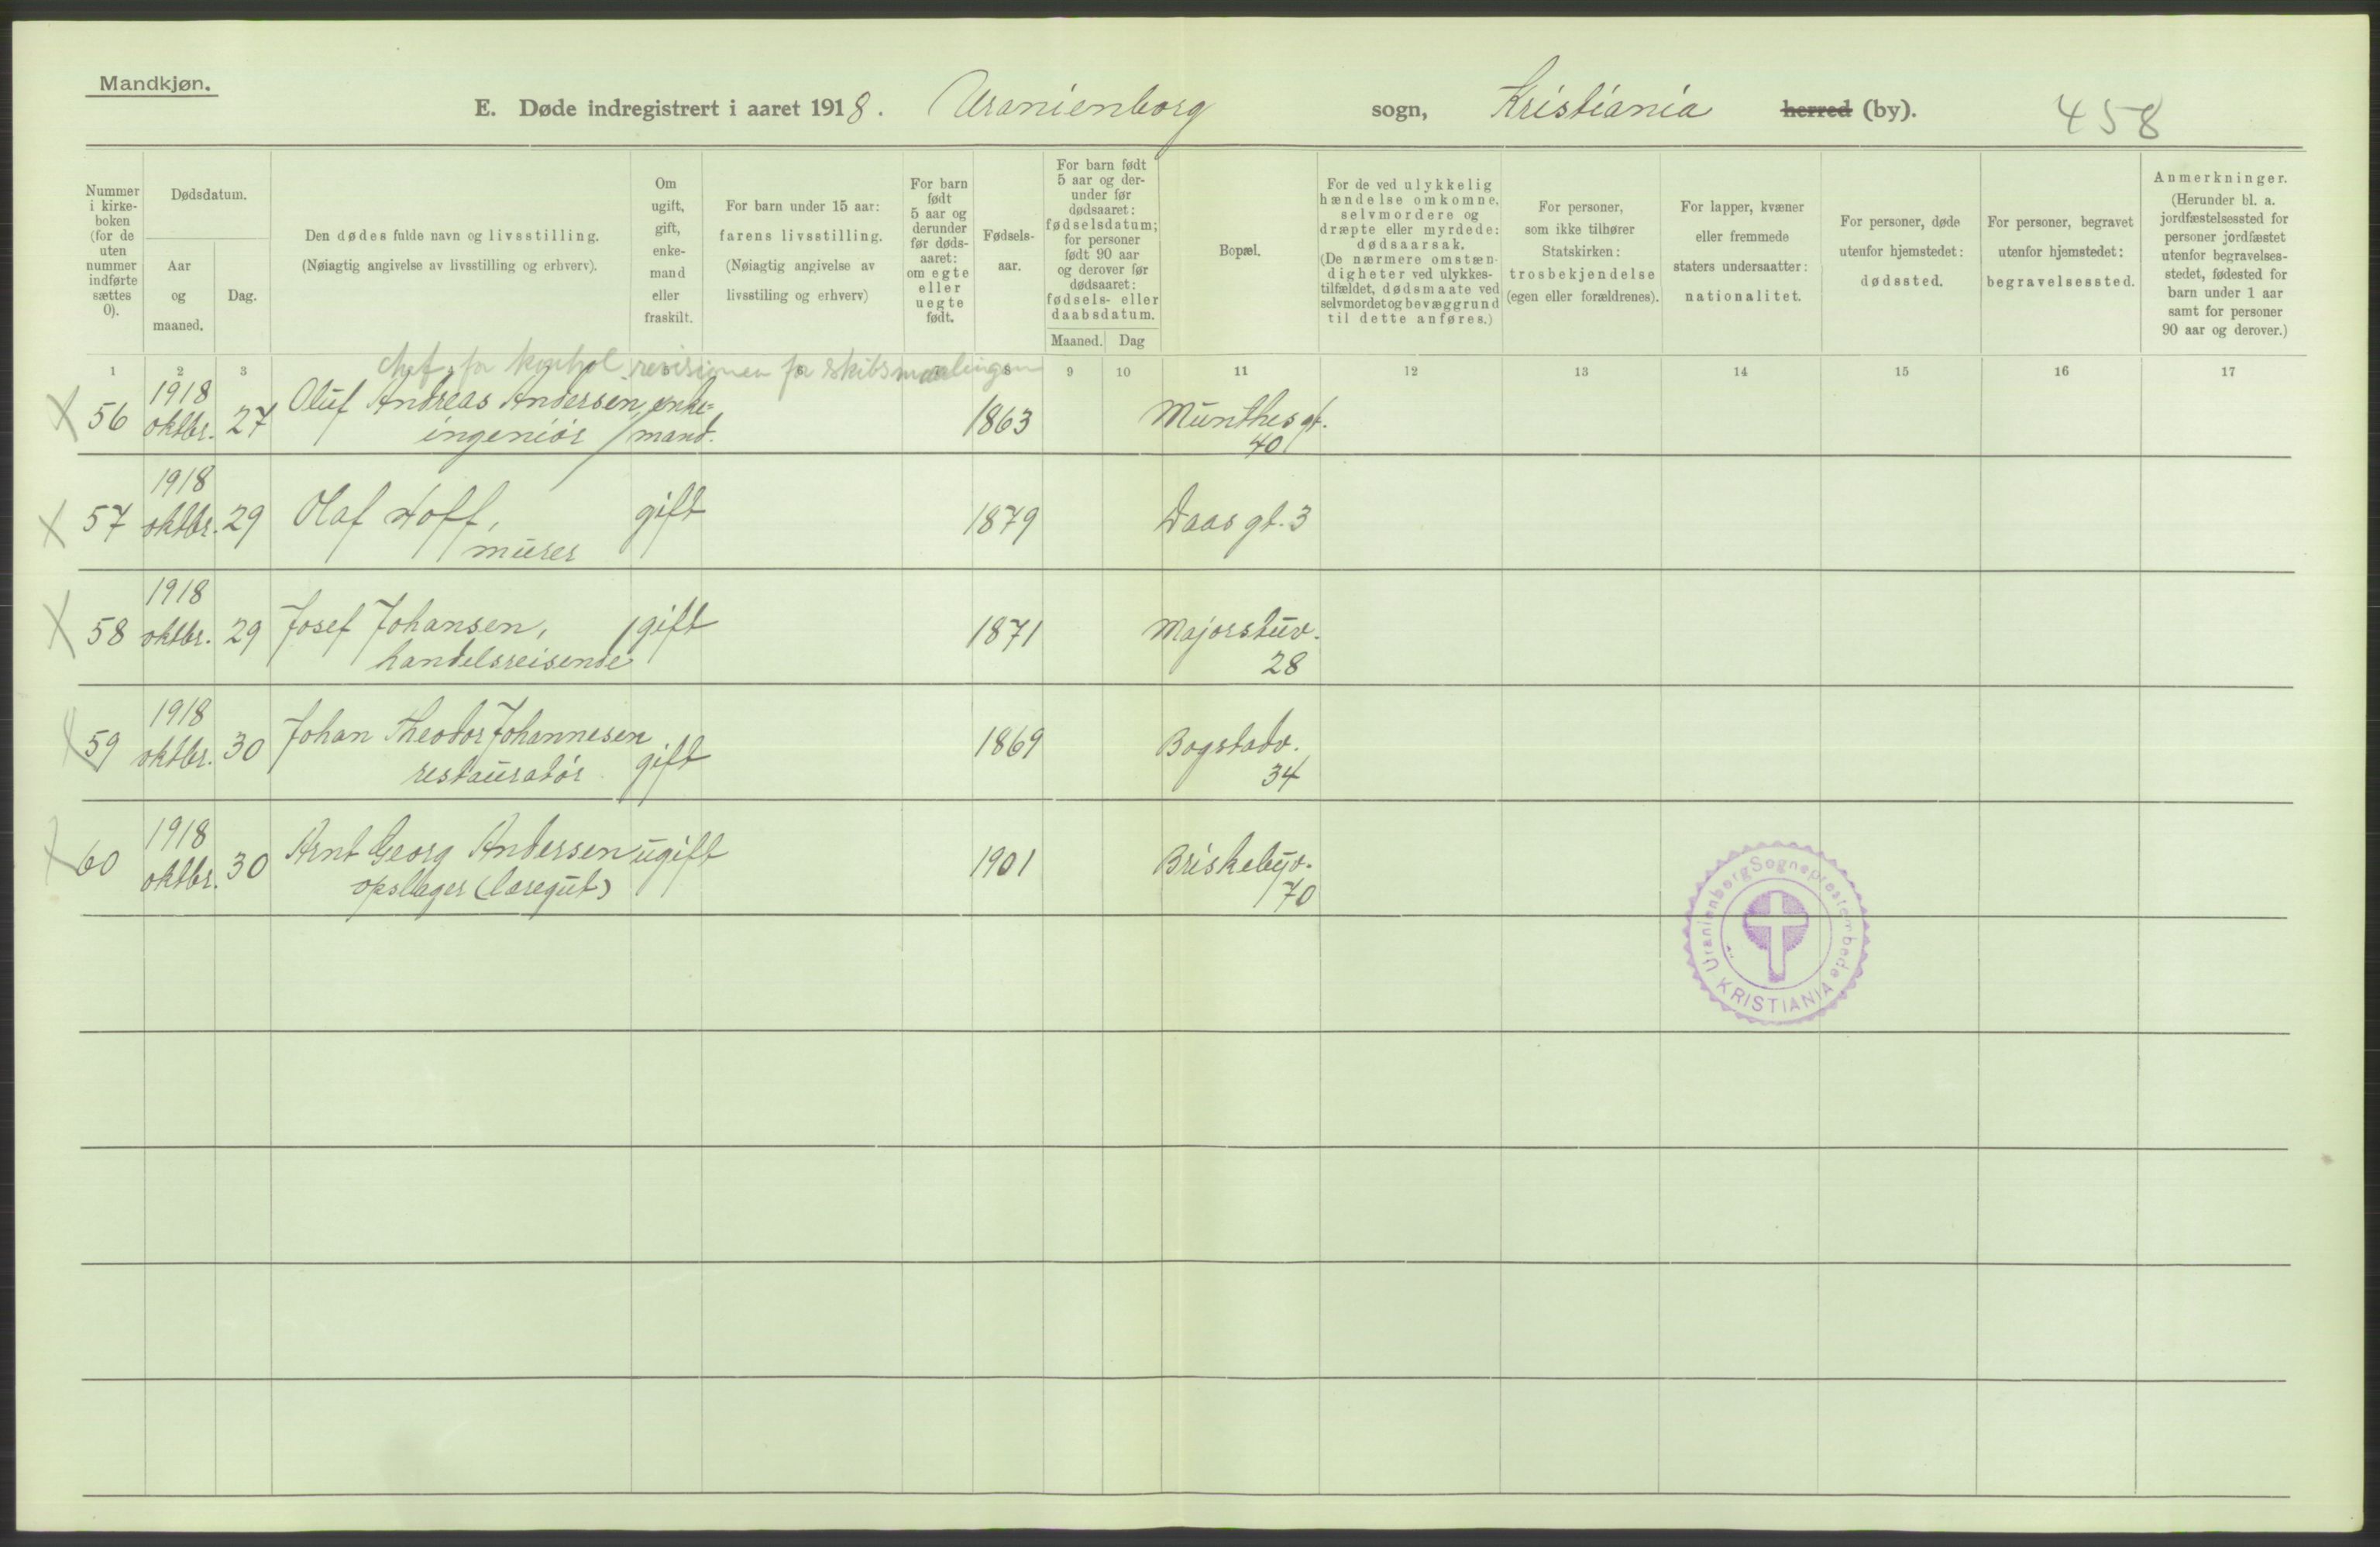 Mandkjøn.
E. Døde indregistrert i aaret 1918. Uranienborg sogn, Kristiania herred (by). 458
Nummer i kirke-boken (for de uten nummer indførte sættes 0).
Dødsdatum.
Aar og maaned.
Dag.
Den dødes fulde navn og livsstilling.
(Nøiagtig angivelse av livsstilling og erhverv).
Om ugift, gift, enke-mand eller fraskilt.
For barn under 15 aar: farens livsstilling.
(Nøiagtig angivelse av livsstiling og erhverv)
For barn født 5 aar og derunder før døds-aaret: om egte eller uegte født.
Fødsels-aar.
For barn født 5 aar og der-under før dødsaaret: fødselsdatum; for personer født 90 aar og derover før dødsaaret: fødsels- eller daabsdatum.
Maaned. Dag
Bopæl.
For de ved ulykkelig hændelse omkomne, selvmordere og dræpte eller myrdede: dødsaarsak. (De nærmere omstæn-digheter ved ulykkes-tilfældet, dødsmaate ved selvmordet og bevæggrund til dette anføres.)
For personer, som ikke tilhører Statskirken: trosbekjendelse (egen eller forældrenes).
For lapper, kvæner eller fremmede staters undersaatter: nationalitet.
For personer, døde utenfor hjemstedet: dødssted.
For personer, begravet utenfor hjemstedet: begravelsessted.
Anmerkninger.
(Herunder bl. a. jordfæstelsessted for personer jordfæstet utenfor begravelses-stedet, fødested for barn under 1 aar samt for personer 90 aar og derover.)
chef for kontrol revisionen for skibsmaalingen
1 2 3 8 9 10 11 12 13 14 15 16 17
56 1918 oktbr. 27 Oluf Andreas Andersen, enke= 1863 Munthes gt.
ingeniør mand. 40
57 1918 oktbr. 29 Olaf Hoff, gift 1879 Daas gt. 3
murer
58 1918 oktbr. 29 Josef Johansen, gift 1871 Majorstuv.
handelsreisende 28
59 1918 oktbr. 30 Johan Theodor Johannesen 1869 Bogstadv.
restauratør gift 34
60 1918 oktbr. 30 Arnt Georg Andersen ugift 1901 Briskebyv.
opslager (læregut) 70
Uranienborg Sogneprestembede
KRISTIANIA